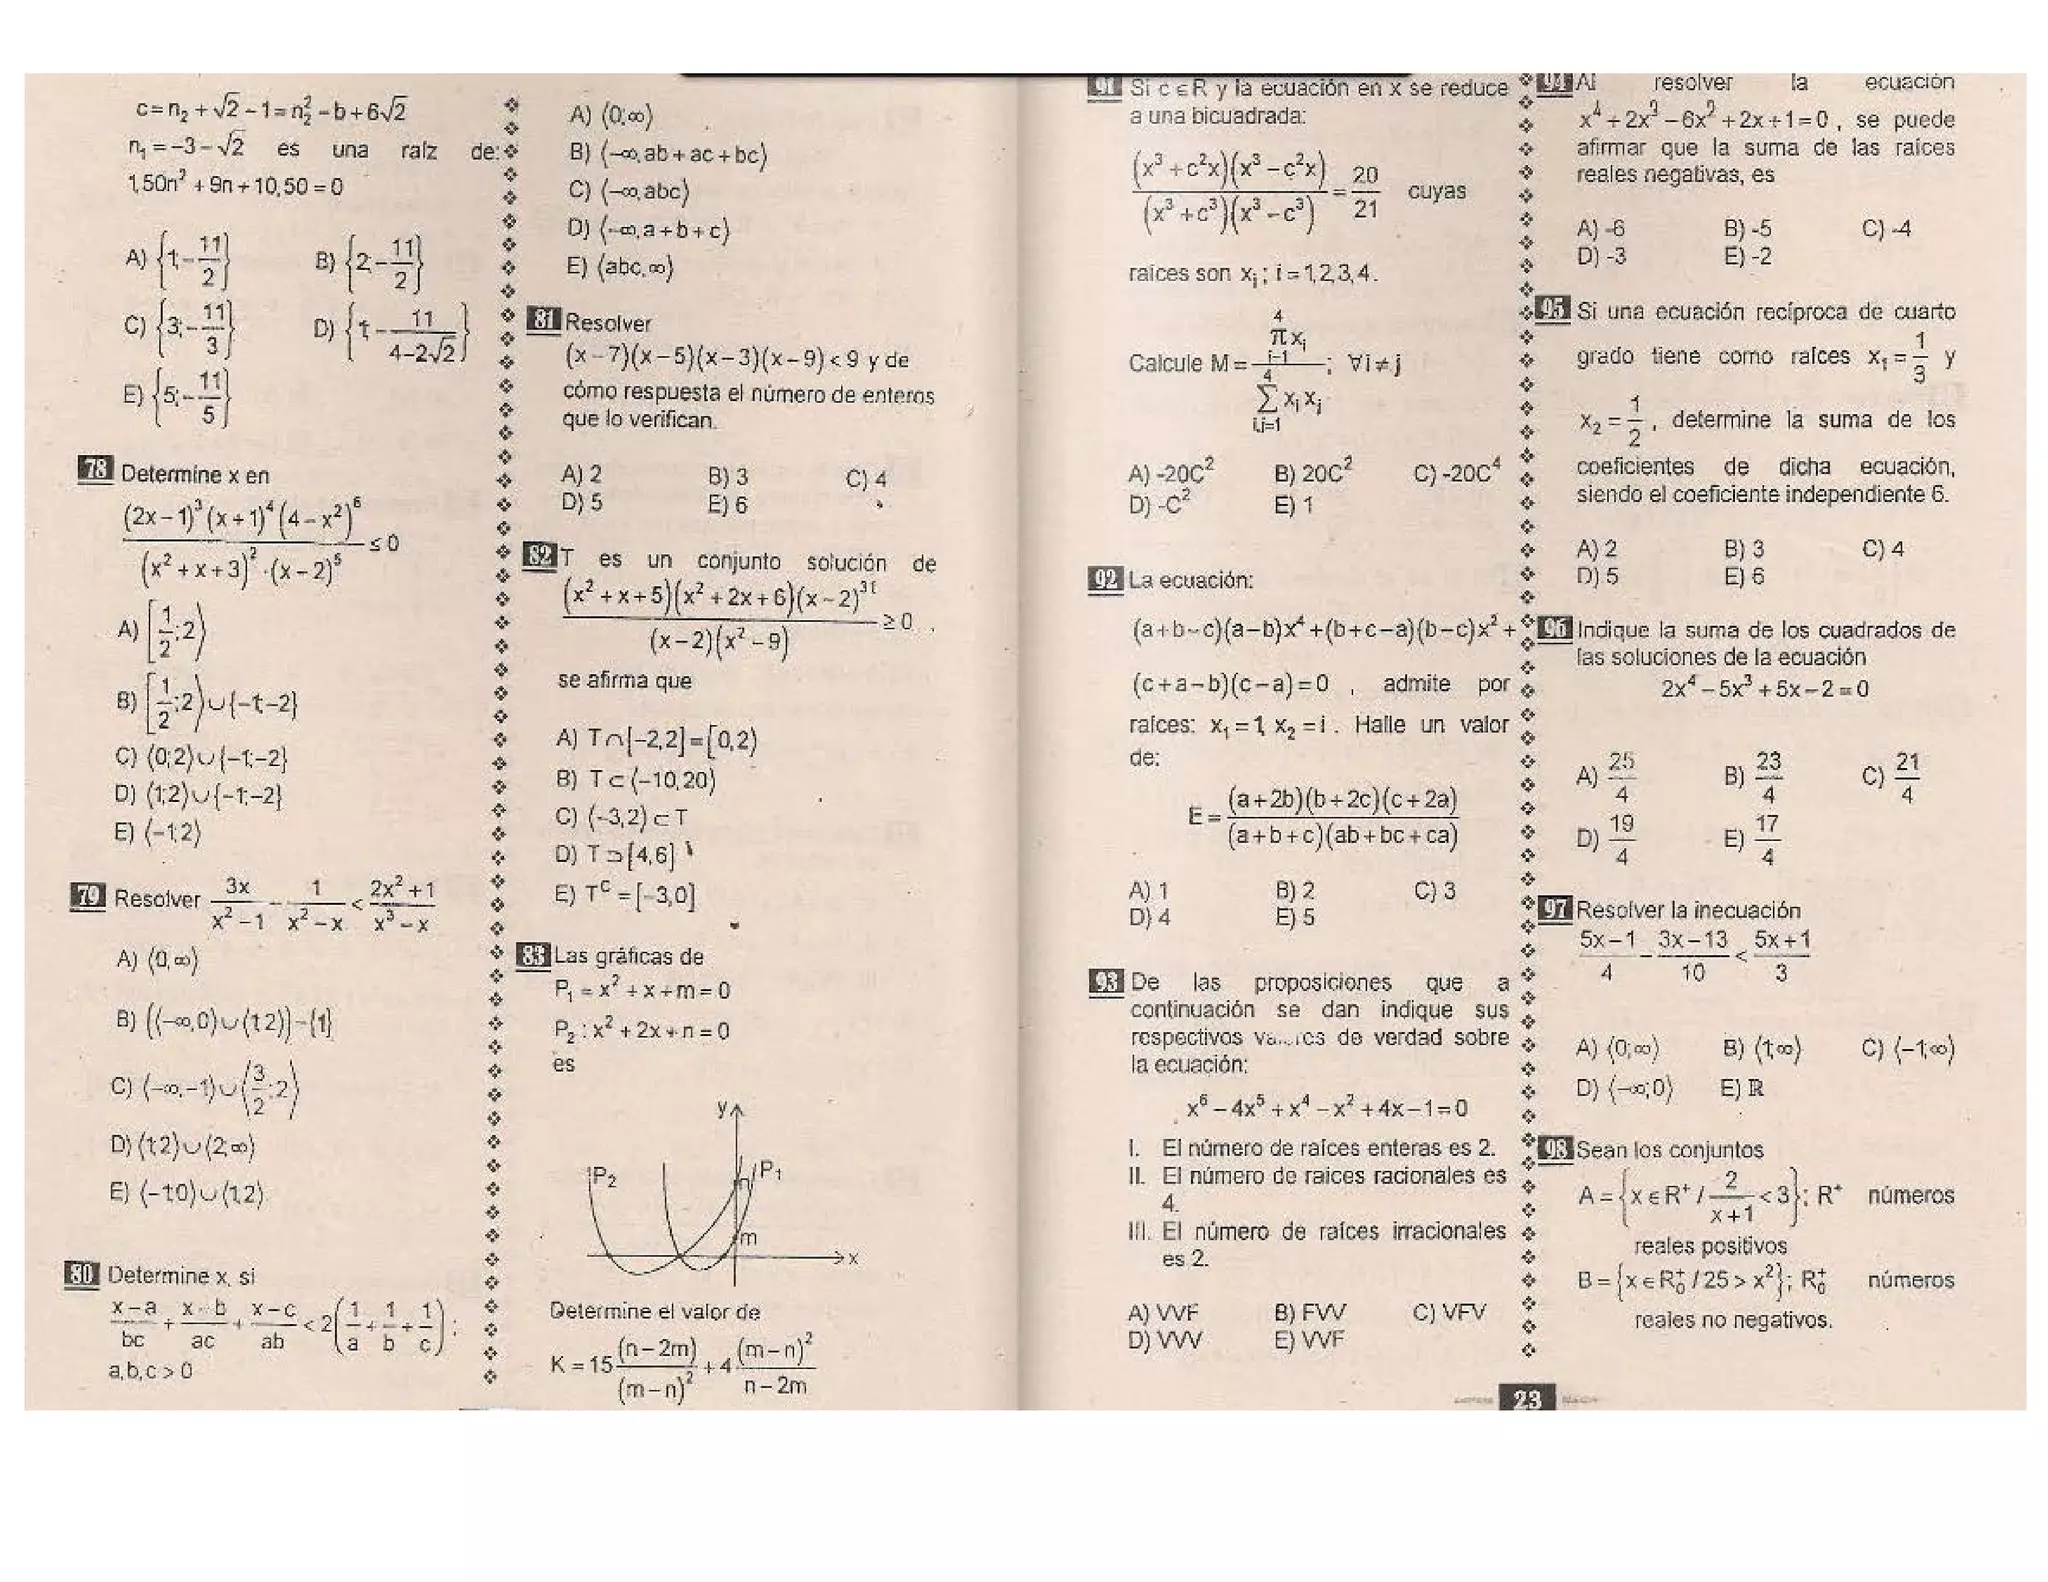 c=n₂+√2-1=n₂²-b+6√2
n₁=-3-√2 es una raíz de:
1,50n²+9n+10,50=0
A) {1;-11/2} B) {2;-11/2}
C) {3;-11/3} D) {1;-11/(4-2√2)}
E) {5;-11/5}
78 Determine x en
((2x-1)³(x+1)⁴(4-x²)⁶)/((x²+x+3)²·(x-2)⁵)≤0
A) [1/2;2⟩
B) [1/2;2⟩∪{-1;-2}
C) ⟨0;2⟩∪{-1;-2}
D) ⟨1;2⟩∪{-1;-2}
E) ⟨-1;2⟩
79 Resolver 3x/(x²-1) - 1/(x²-x) < (2x²+1)/(x³-x)
A) ⟨0,∞⟩
B) (⟨-∞,0⟩∪⟨1;2⟩)-{1}
C) ⟨-∞,-1⟩∪⟨3/2;2⟩
D) ⟨1;2⟩∪⟨2;∞⟩
E) ⟨-1;0⟩∪⟨1,2⟩
80 Determine x, si
(x-a)/bc + (x-b)/ac + (x-c)/ab < 2(1/a+1/b+1/c);
a,b,c>0
A) ⟨0;∞⟩
B) ⟨-∞,ab+ac+bc⟩
C) ⟨-∞,abc⟩
D) ⟨-∞,a+b+c⟩
E) ⟨abc,∞⟩
81 Resolver
(x-7)(x-5)(x-3)(x-9)<9 y de
cómo respuesta el número de enteros
que lo verifican.
A) 2 B) 3 C) 4
D) 5 E) 6
82 T es un conjunto solución de
((x²+x+5)(x²+2x+6)(x-2)³¹)/((x-2)(x²-9))≥0 .
se afirma que
A) T∩[-2,2]=[0,2⟩
B) T⊂⟨-10,20⟩
C) ⟨-3,2⟩⊂T
D) T⊃[4,6]
E) Tᶜ=[-3,0]
83 Las gráficas de
P₁=x²+x+m=0
P₂:x²+2x+n=0
es
y
P₂ P₁
n
m
x
Determine el valor de
K=15(n-2m)/(m-n)²+4(m-n)²/(n-2m)
91 Si c∈R y la ecuación en x se reduce
a una bicuadrada:
((x³+c²x)(x³-c²x))/((x³+c³)(x³-c³))=20/21 cuyas
raíces son xᵢ; i=1,2,3,4.
Calcule M= (4 π xᵢ i=1)/(4 Σ xᵢxⱼ i,j=1); ∀i≠j
A) -20C² B) 20C² C) -20C⁴
D) -C² E) 1
92 La ecuación:
(a+b-c)(a-b)x⁴+(b+c-a)(b-c)x²+
(c+a-b)(c-a)=0 , admite por
raíces: x₁=1, x₂=i. Halle un valor
de:
E=((a+2b)(b+2c)(c+2a))/((a+b+c)(ab+bc+ca))
A) 1 B) 2 C) 3
D) 4 E) 5
93 De las proposiciones que a
continuación se dan indique sus
respectivos de verdad sobre
la ecuación:
x⁶-4x⁵+x⁴-x²+4x-1=0
I. El número de raíces enteras es 2.
II. El número de raíces racionales es
4.
III. El número de raíces irracionales
es 2.
A) VVF B) FVV C) VFV
D) VVV E) VVF
94 Al resolver la ecuación
x⁴+2x³-6x²+2x+1=0, se puede
afirmar que la suma de las raíces
reales negativas, es
A) -6 B) -5 C) -4
D) -3 E) -2
95 Si una ecuación recíproca de cuarto
grado tiene como raíces x₁=1/3 y
x₂=1/2, determine la suma de los
coeficientes de dicha ecuación,
siendo el coeficiente independiente 6.
A) 2 B) 3 C) 4
D) 5 E) 6
96 Indique la suma de los cuadrados de
las soluciones de la ecuación
2x⁴-5x³+5x-2=0
A) 25/4 B) 23/4 C) 21/4
D) 19/4 E) 17/4
97 Resolver la inecuación
(5x-1)/4 - (3x-13)/10 < (5x+1)/3
A) ⟨0;∞⟩ B) ⟨1;∞⟩ C) ⟨-1;∞⟩
D) ⟨-∞;0⟩ E) ℝ
98 Sean los conjuntos
A={x∈R⁺/2/(x+1)<3}; R⁺ números
reales positivos
B={x∈R₀⁺/25>x²}; R₀⁺ números
reales no negativos.
23